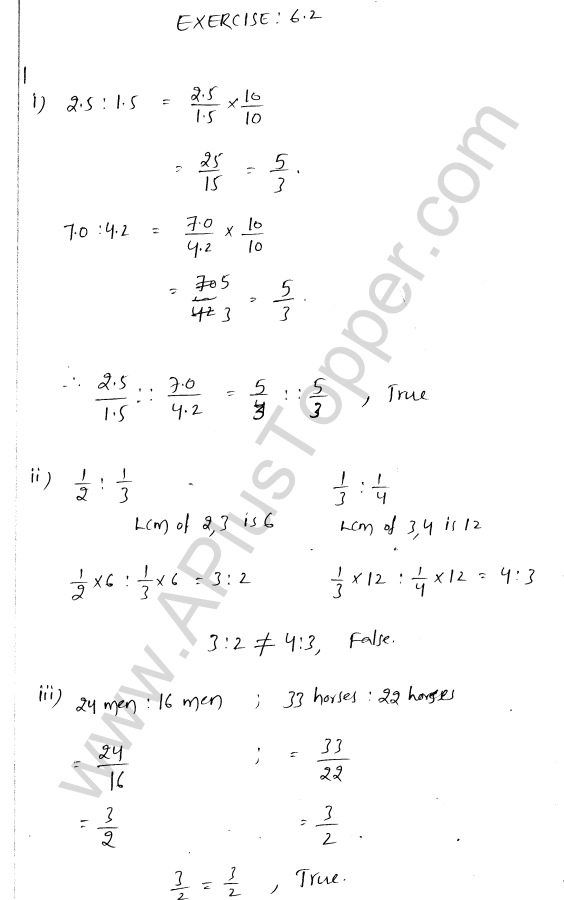 EXERCISE: 6.2
1
i) 2.5 : 1.5 = 2.5/1.5 × 10/10
= 25/15 = 5/3.
7.0 : 4.2 = 7.0/4.2 × 10/10
= 70 5/42 3 = 5/3.
∴ 2.5/1.5 :: 7.0/4.2 = 5/3 :: 5/3, True
ii) 1/2 : 1/3 1/3 : 1/4
Lcm of 2,3 is 6 Lcm of 3,4 is 12
1/2 × 6 : 1/3 × 6 = 3 : 2 1/3 × 12 : 1/4 × 12 = 4 : 3
3 : 2 ≠ 4 : 3, False.
iii) 24 men : 16 men ; 33 horses : 22 horses
= 24/16 ; = 33/22
= 3/2 = 3/2.
3/2 = 3/2, True.
www.APlusTopper.com